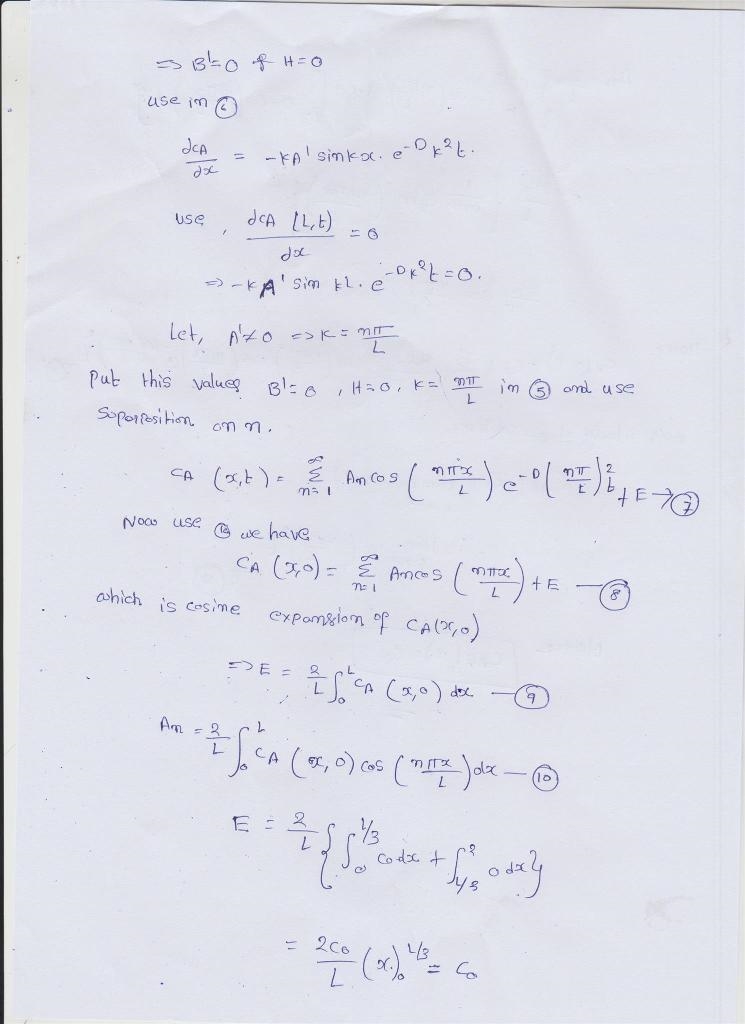 ⇒ B'=0 & H=0
use in ⑥
dCA/dx = -KA' sinkx. e^-Dk²t.
use, dCA (L,t)/dx = 0
⇒ -KA' sin kL. e^-Dk²t = 0.
Let, A'≠0 ⇒ K = nπ/L
Put this values B'=0, H=0, K= nπ/L in ⑤ and use
Superposition on n.
CA (x,t) = ∞Σn=1 An cos (nπx/L) e^-D(nπ/L)²t + E → ⑦
Now use we have
CA (x,0) = ∞Σn=1 An cos (nπx/L) + E — ⑧
which is cosine expansion of CA(x,0)
⇒ E = 2/L ∫₀^L CA (x,0) dx — ⑨
An = 2/L ∫₀^L CA (x,0) cos (nπx/L) dx — ⑩
E = 2/L { ∫₀^L/3 C0 dx + ∫ 0 dx }
= 2C0/L (x)₀^L/3 = C0